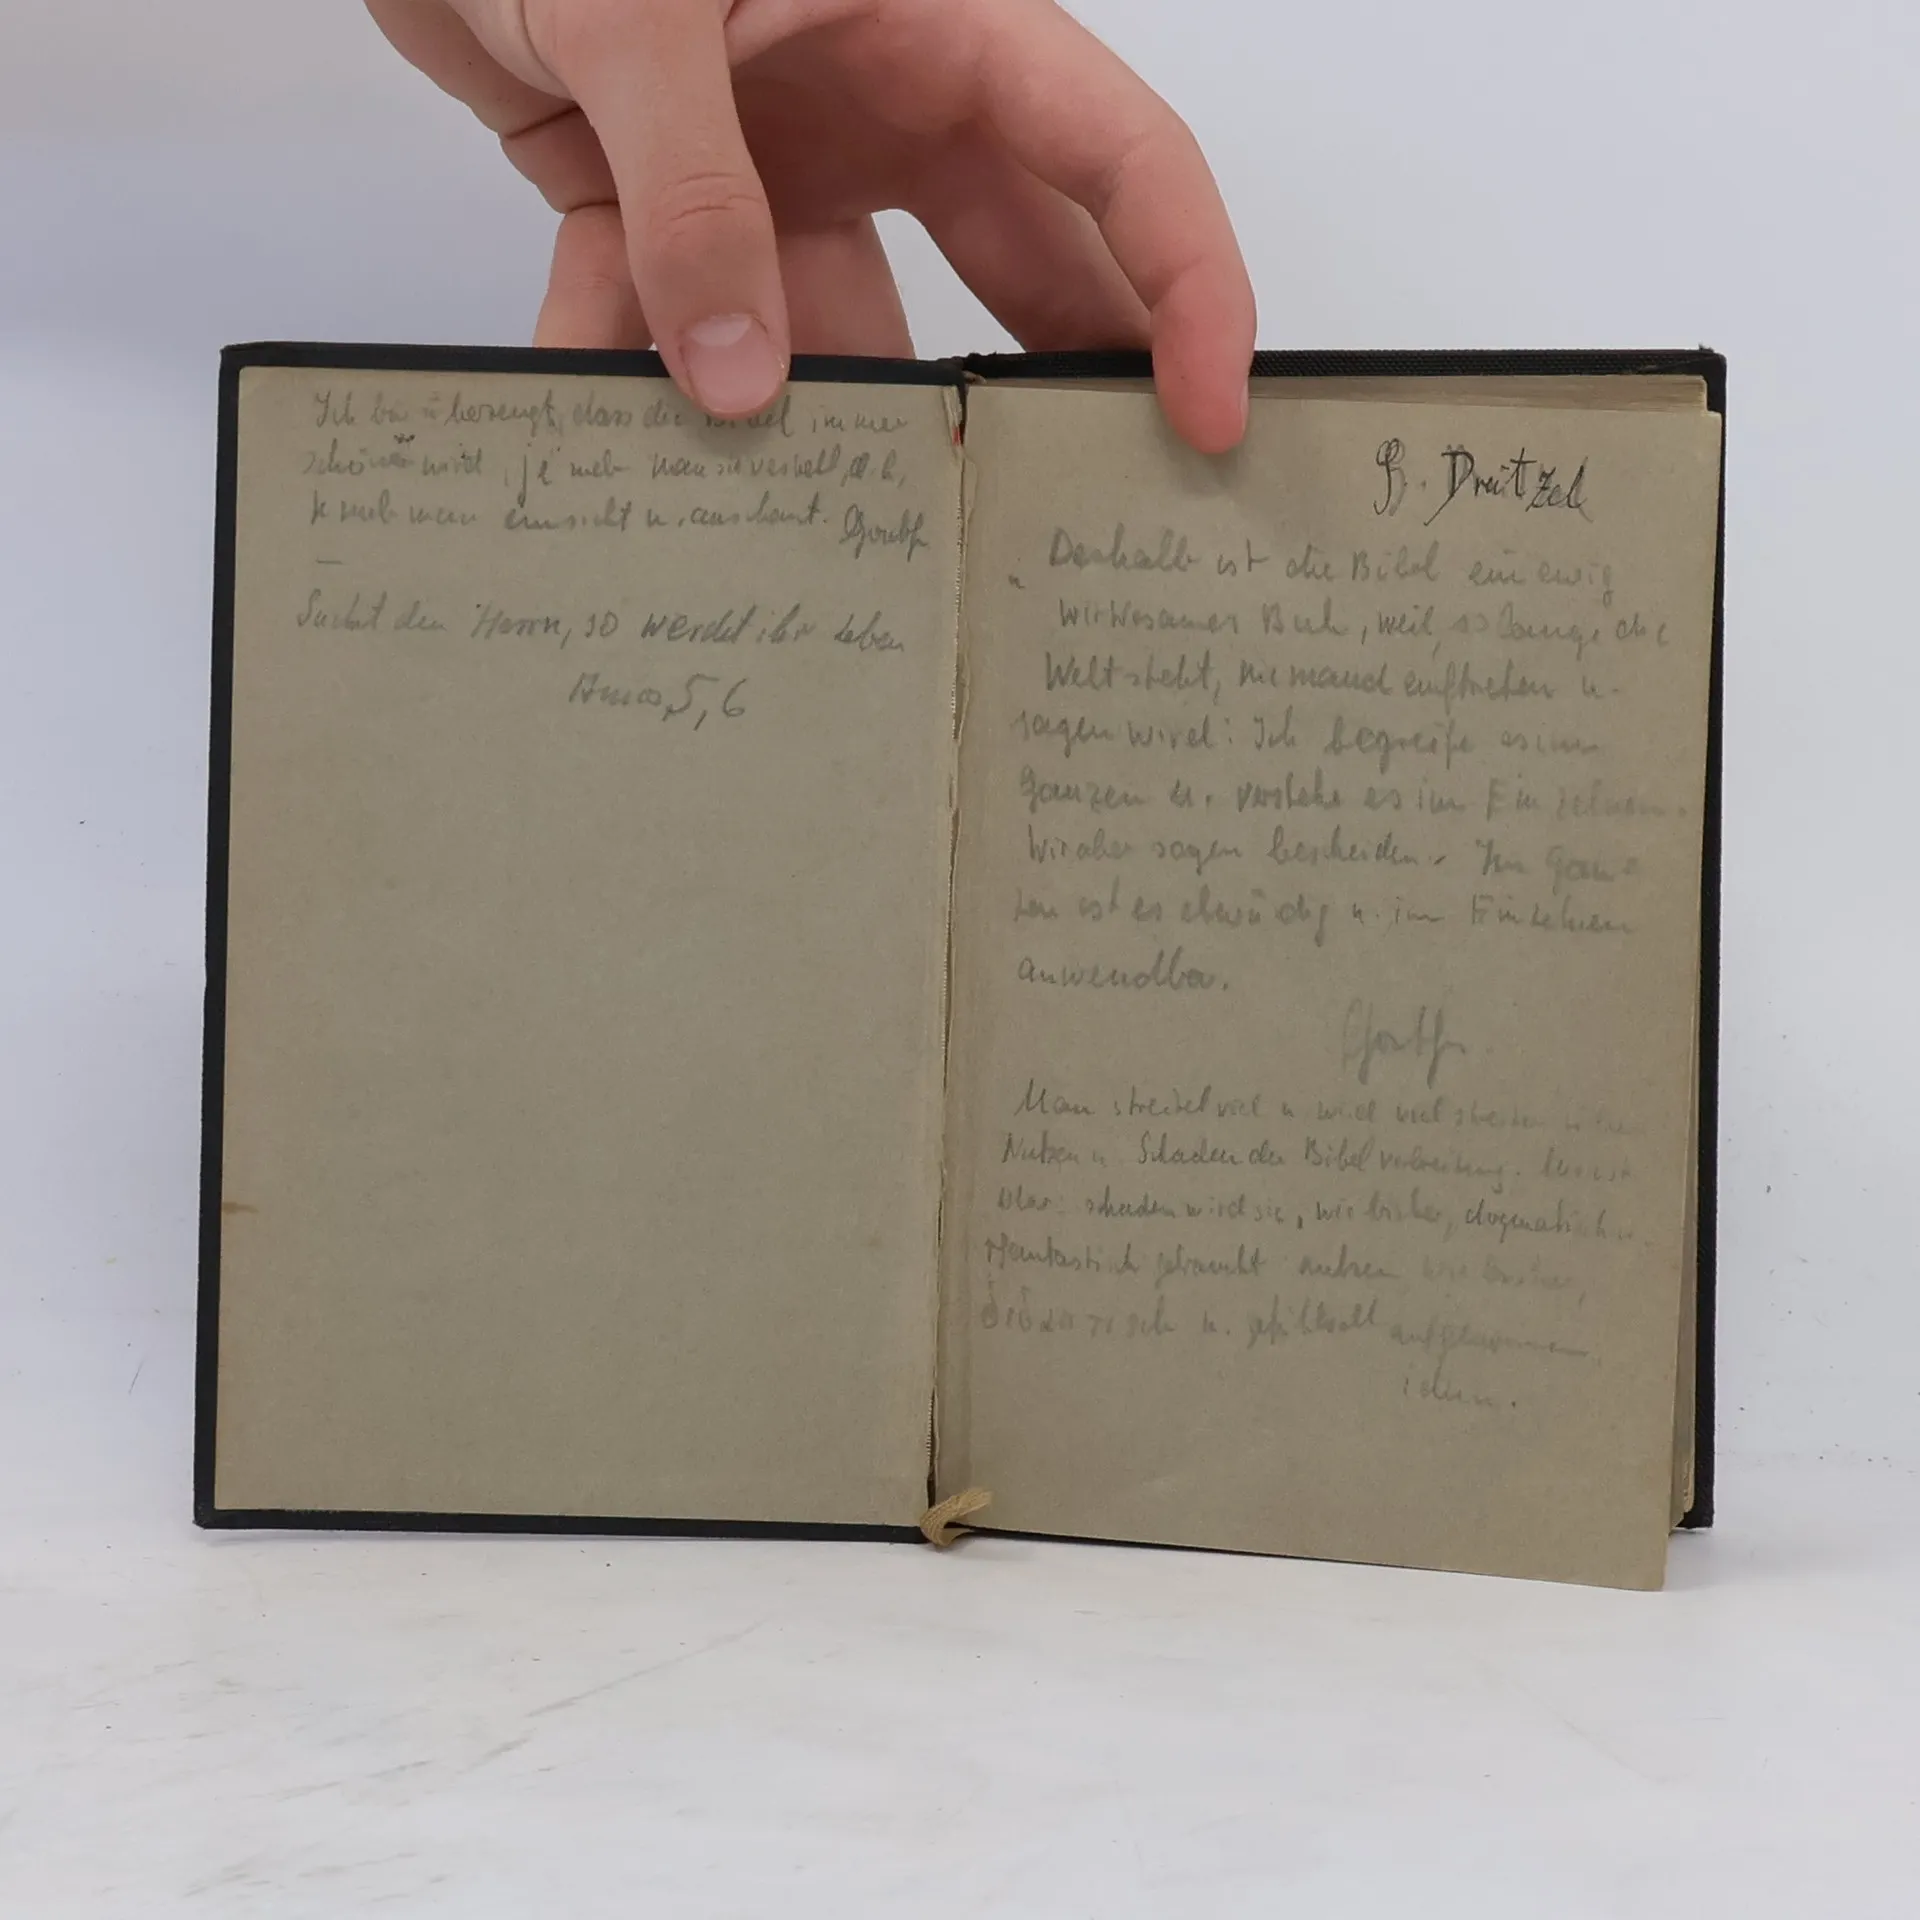 Ich bin überzeugt, dass die Bibel immer
schöner wird, je mehr man sie versteht, d.h.,
je mehr man einsieht u. anschaut. Goethe
—
Suchet den Herrn, so werdet ihr leben
Amos, 5, 6
Dreitzel
„ Deshalb ist die Bibel ein ewig
wirksames Buch, weil, so lange die
Welt steht, niemand auftreten u.
sagen wird: Ich begreife es im
Ganzen u. verstehe es im Einzelnen.
Wir aber sagen bescheiden: Im Gan-
zen ist es ehrwürdig u. im Einzelnen
anwendbar.
Goethe.
Man streitet viel u. wird viel streiten
Nutzen u. Schaden der Bibelverbreitung.
klar: schaden wird sie, wie bisher, dogmatisch u.
phantastisch gebraucht nutzen, wie bisher,
didaktisch u. gefühlvoll aufgenommen.
idem.